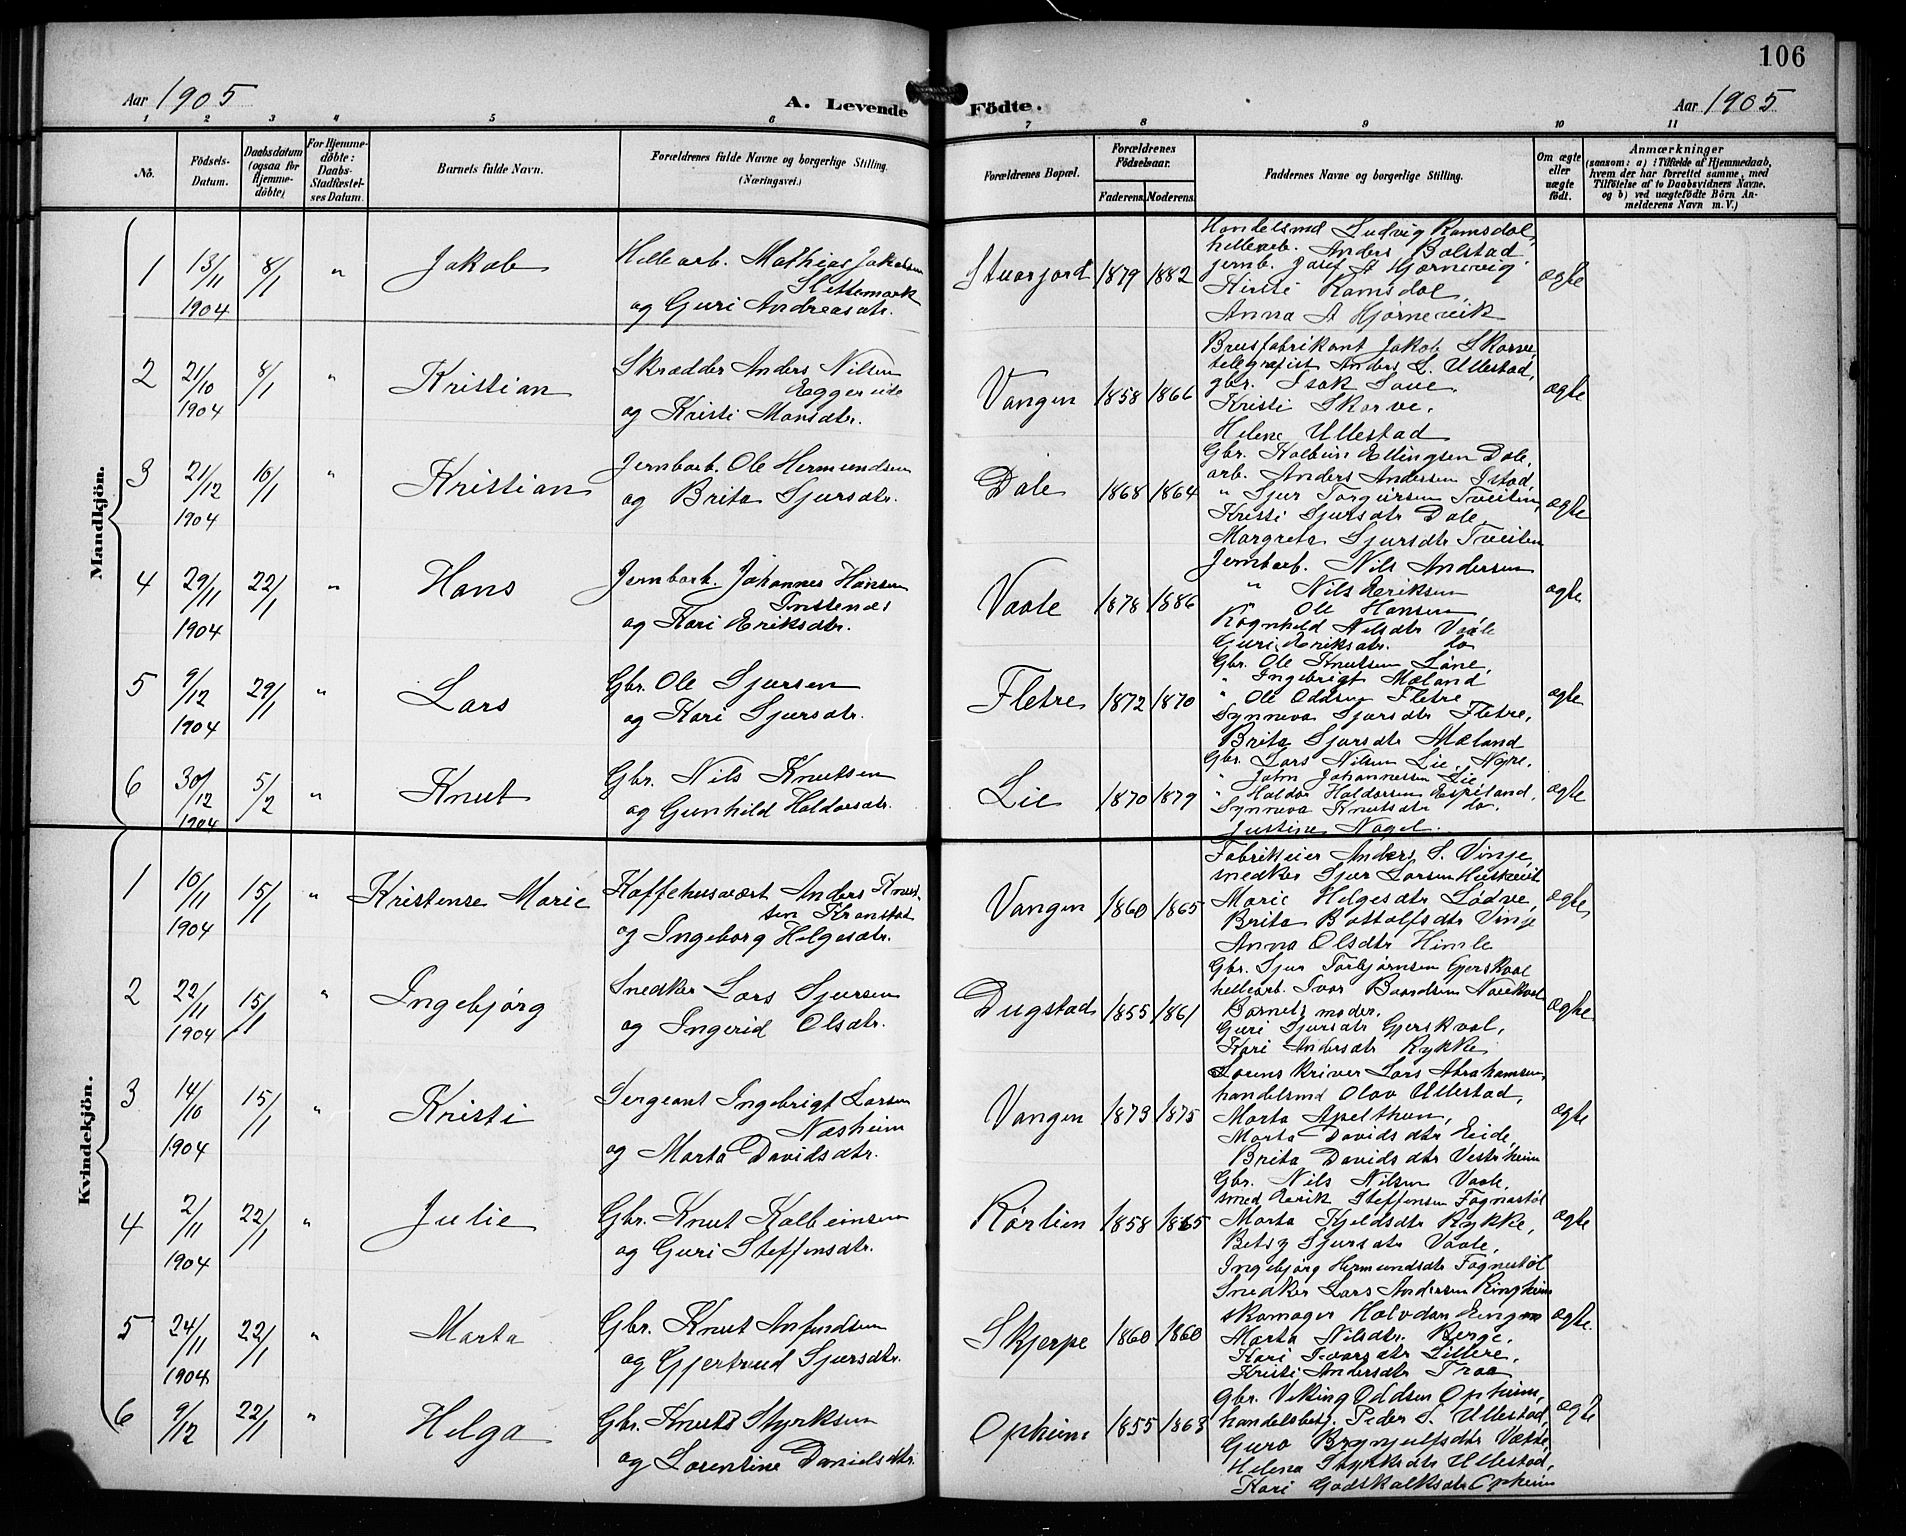 106
Aar 1905
A. Levende Födte.
Aar 1905
1 2 3 4 5 6 7 8 9 10 11
No.
Födsels-Datum.
Daabsdatum (ogsaa for Hjemmedöbte)
For Hjemmedöbte: Daabs-Stadfæstelses Datum.
Barnets fulde Navn.
Forældrenes fulde Navne og borgerlige Stilling. (Næringsvei.)
Forældrenes Bopæl.
Forældrenes Födselsaar.
Faderens Moderens
Faddernes Navne og borgerlige Stilling.
Om ægte eller uægte födt.
Anmærkninger
(saasom: a) i Tilfælde af Hjemmedaab,
hvem der har forrettet samme, med
Tilföielse af to Daabsvidners Navne.
og b) ved uægtefödte Börn Anmelderens Navn m. V.)
Mandkjön.
1 13/11 1904 8/1 " Jakob
Hellearb. Mathias Jakobsen
Slettemark
og Guri Andreasdtr.
1879 1882
Handelsmd Ludvig Ramsdal,
hellearb. Anders Bolstad
jernb. Josef A Hjørnevig
Kirsti Ramsdal,
Anna A Hjørnevik
ægte
2 21/10 1904 8/1 " Kristian
Skrædder Anders Nilsen
Eggereide
og Kristi Monsdtr.
Vangen 1858 1866
Brusfabrikant Jakob Skorve,
telegrafist Anders L. Ullestad,
gbr. Isak
Kristi Skorve,
Helene Ullestad
ægte
3 21/12 1904 10/1 " Kristian
Jernbarb. Ole Hermundsen
og Brita Sjursdtr.
Dale 1868 1864
Gbr. Kolbein Ellingsen Dale,
arb. Anders Andersen Istad,
" Sjur Torgeirsen Tveiten,
Kristi Sjursdtr Dale
Margreta Sjursdtr Tveiten
ægte
4 29/11 1904 22/1 " Hans
Jernbarb. Johannes Hansen
og Kari Eriksdtr.
Vaale 1878 1886
Jernbarb. Nils Andersen
" Nils Eriksen
" Ole Hansen
Ragnhild Nilsdtr Vaale
Guri Eriksdtr. do
ægte
5 9/12 1904 29/1 " Lars
Gbr. Ole Sjursen
og Kari Sjursdtr.
Fletre 1872 1870
Gbr. Ole Knutsen Løne,
" Ingebrigt Mæland
" Ole Oddsen Fletre
Synneva Sjursdtr Fletre,
Brita Sjursdtr Mæland
ægte
6 30/12 1904 5/2 " Knut
Gbr. Nils Knutsen
og Gunhild Haldorsdtr.
Lie 1870 1879
Gbr. Lars Nilsen Lie, Nyre.
" John Johannessen Lie
" Haldor Haldorsen Espeland,
Synneva Knutsdtr do.
Justine Nagel.
ægte
Kvindekjön.
1 10/11 1904 15/1 " Kristense Marie
Kaffehusvært Anders Knutsen
og Ingeborg Helgesdtr.
Vangen 1860 1865
Fabrikeier Anders S. Vinje,
snedker Sjur Larsen
Marie Helgesdtr Lødve,
Brita Bottolfsdtr Vinje
Anna Olsdtr Himle
ægte
2 22/11 1904 15/1 " Ingebjørg
Snedker Lars Sjursen
og Ingerid Olsdtr.
Dugstad 1855 1861
Gbr. Sjur Torbjørnsen Gjerskval
hellearb. Ivar Baardsen
Barnets moder,
Guri Sjursdtr Gjerskval,
Kari Andersdtr Rykke
ægte
3 14/10 1904 15/1 " Kristi
Sergeant Ingebrigt Larsen
Næsheim
og Marta Davidsdtr.
Vangen 1873 1875
Lensskriver Lars Abrahamsen,
handelsmd Olav Ullestad,
Marta Apelthun,
Marta Davidsdtr Eide,
Brita Davidsdtr Vestrheim
ægte
4 2/11 1904 22/1 " Julie
Gbr. Knut Kolbeinsen
og Guri Steffensdtr.
Rørlien 1858 1865
Gbr. Nils Nilsen Vaale,
smed Eirik Steffensen Fagnastøl
Marta Kjeldsdtr Rykke,
Betsy Sjursdtr Vaale,
Ingebjørg Hermundsdtr Fagnestøl
ægte
5 24/11 1904 22/1 " Marta
Gbr. Knut Anfindsen
og Gjertrud Sjursdtr.
Skjerpe 1860 1860
Snedker Lars Andersen Ringheim
skomager Halvdan
Marta Nilsdtr. Berge,
Kari Ivarsdtr
Kristi Andersdtr Traa
ægte.
6 9/12 22/1 " Helga
Gbr. Knut Styrksen
og Lorentine Danielsdtr.
Opheim 1855 1863
Gbr. Viking Oddsen Opheim,
handelsbetj. Peder S. Ullestad,
Guro Brynjulfsdtr
Helena Styrksdtr Ullestad,
Kari Godskalksdtr Opheim
ægte